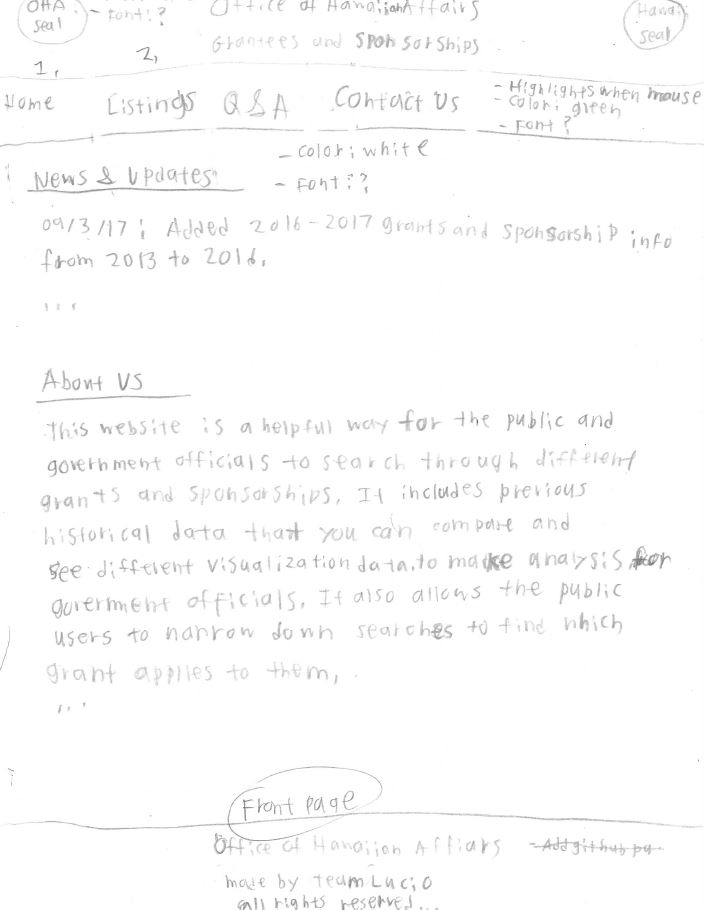 OHA seal
- Font: ?
Office of Hawaiian Affairs
Grantees and Sponsorships
Hawaii seal
1,
2,
Home Listings Q & A Contact Us
- Highlights when mouse
- Color: green
- Font ?
- color: white
- Font: ?
News & Updates
09/3/17: Added 2016-2017 grants and sponsorship info
from 2013 to 2016.
...
About Us
This website is a helpful way for the public and
government officials to search through different
grants and sponsorships. It includes previous
historical data that you can compare and
see different visualization data. to make analysis for
goverment officials. It also allows the public
users to narrow down searches to find which
grant applies to them,
...
Front page
Office of Hawaiian Affiars - Add github pa
made by team Lucio
all rights reserved...